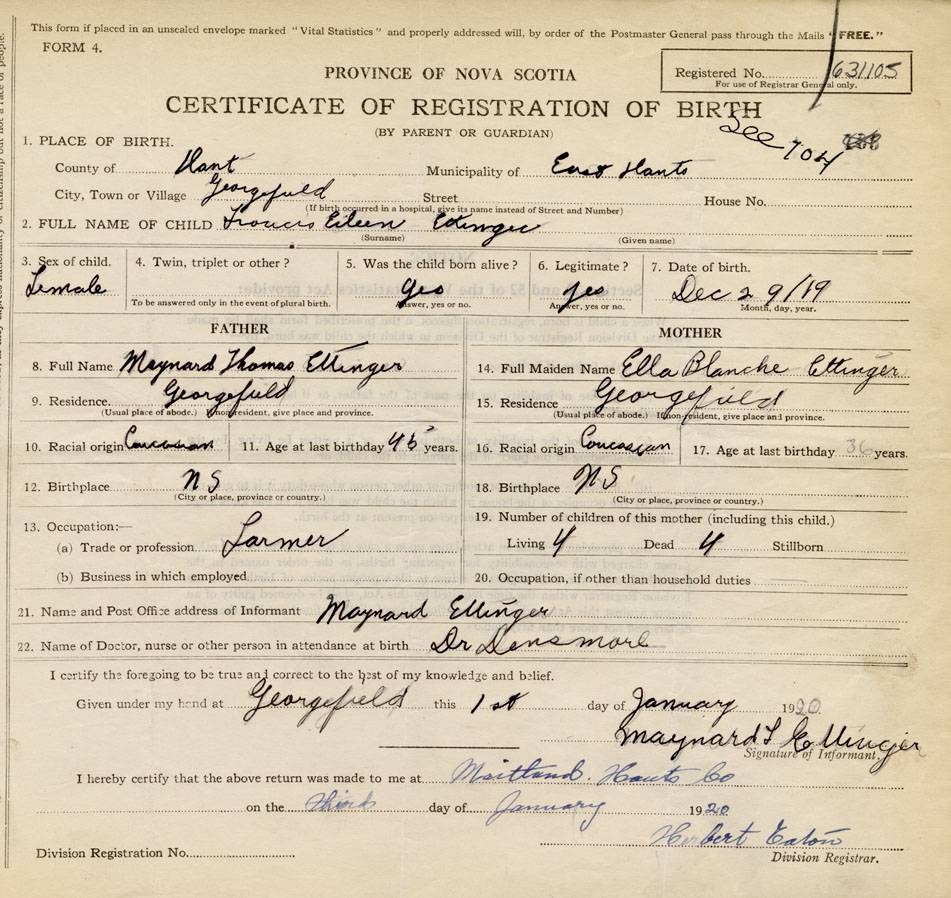 This form if placed in an unsealed envelope marked "Vital Statistics" and properly addressed will, by order of the Postmaster General pass through the Mails "FREE."
FORM 4.
PROVINCE OF NOVA SCOTIA
Registered No. 631105
For use of Registrar General only.
CERTIFICATE OF REGISTRATION OF BIRTH
(BY PARENT OR GUARDIAN)
See 704
1. PLACE OF BIRTH.
County of Hant Municipality of East Hants
City, Town or Village Georgefield Street House No.
(If birth occurred in a hospital, give its name instead of Street and Number)
2. FULL NAME OF CHILD Francis Eileen Ettinger
(Surname) (Given name)
3. Sex of child. 4. Twin, triplet or other? 5. Was the child born alive? 6. Legitimate? 7. Date of birth.
Female yes yes Dec 29/19
To be answered only in the event of plural birth. Answer, yes or no. Answer, yes or no. Month, day, year.
FATHER MOTHER
8. Full Name Maynard Thomas Ettinger 14. Full Maiden Name Ella Blanche Ettinger
9. Residence. Georgefield 15. Residence Georgefield
(Usual place of abode.) If non-resident, give place and province. (Usual place of abode.) If non-resident, give place and province.
10. Racial origin Caucasian 11. Age at last birthday 45 years. 16. Racial origin Caucasian 17. Age at last birthday 36 years.
12. Birthplace N S 18. Birthplace N S
(City or place, province or country.) (City or place, province or country.)
13. Occupation:— 19. Number of children of this mother (including this child.)
(a) Trade or profession Farmer Living 4 Dead 4 Stillborn
(b) Business in which employed 20. Occupation, if other than household duties
21. Name and Post Office address of Informant Maynard Ettinger
22. Name of Doctor, nurse or other person in attendance at birth Dr Densmore
I certify the foregoing to be true and correct to the best of my knowledge and belief.
Given under my hand at Georgefield this 1st day of January 1920
Maynard T Ettinger
Signature of Informant.
I hereby certify that the above return was made to me at Maitland. Hants Co
on the third day of January 1920
Herbert Eaton
Division Registration No. Division Registrar.